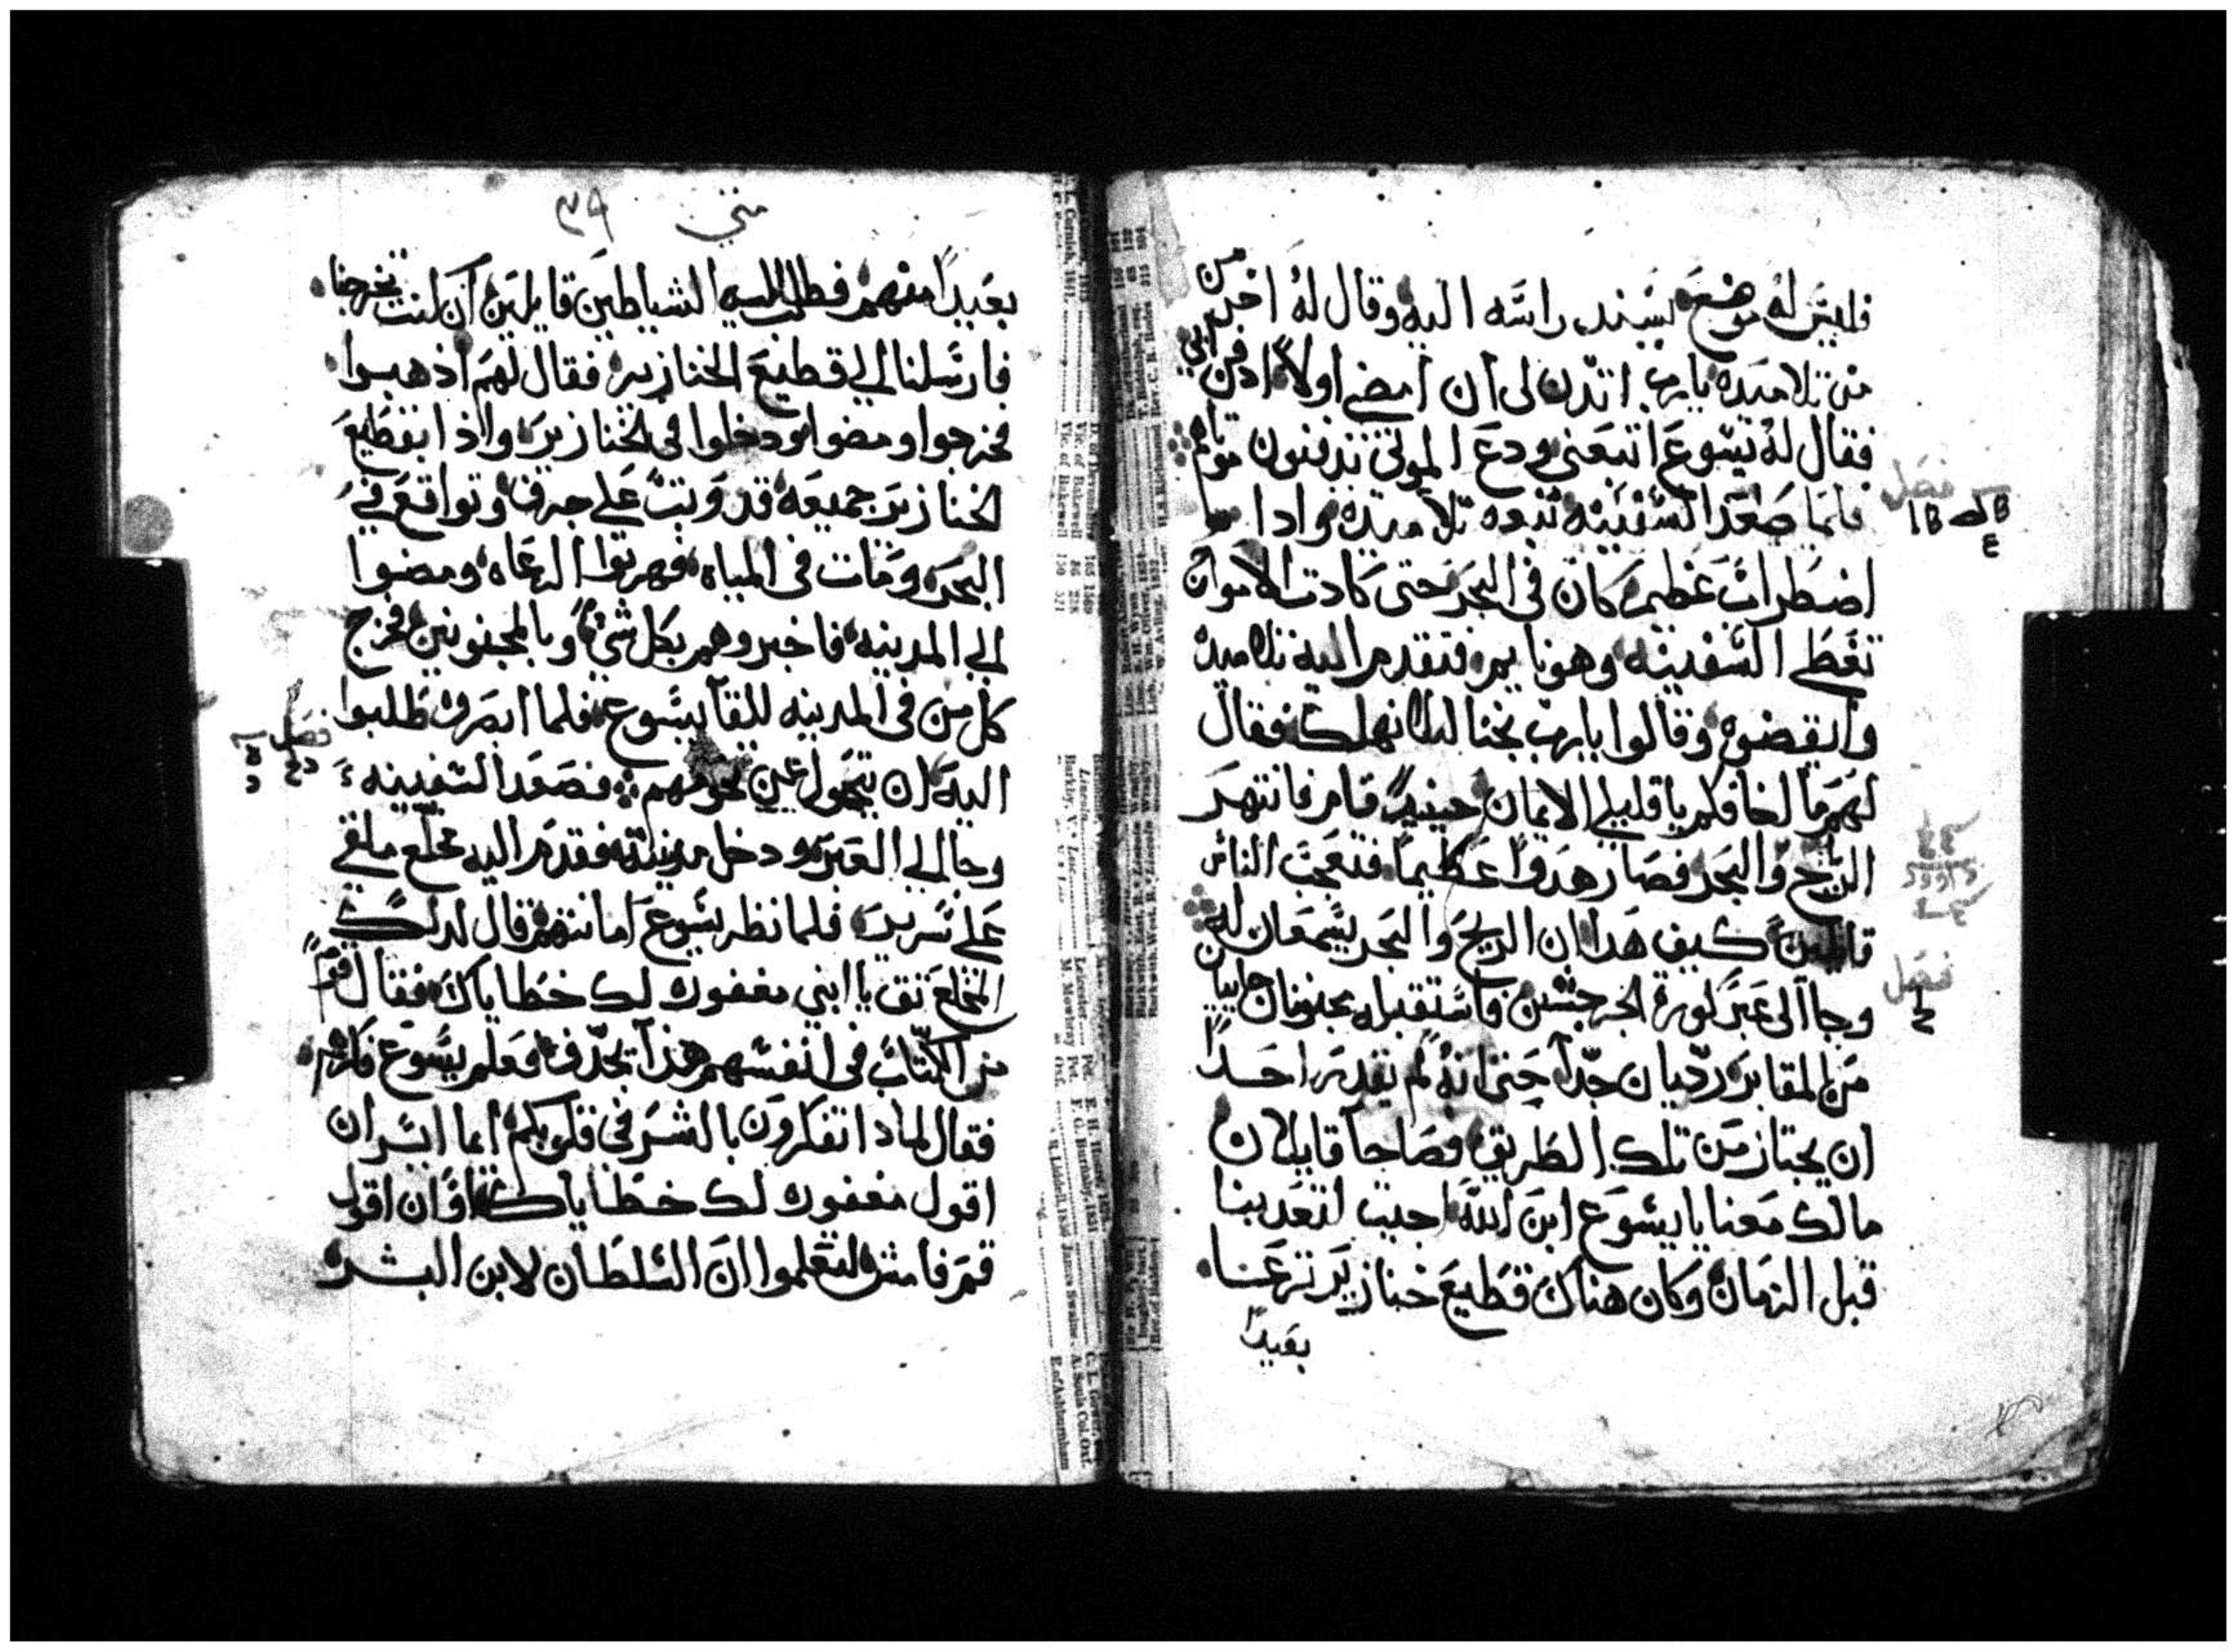 فليس له موضع يسند راسه اليه وقال له اخر من
من تلاميده يارب ائدن لى ان امضي اولا ادفن ابي
فقال له يسوع اتبعنى ودع الموتى تدفنون موتاهم
فلما صعد السفينه تبعوه تلاميده وادا
فصل
اضطراب عظيم كان فى البحر حتى كادت الامواج
تغطي السفينه وهو نايم فتقدم اليه تلاميده
وايقضوه وقالوا يارب نجنا ليلا نهلك فقال
لهم ما اخافكم يا قليلي الايمان حينيد قام فانتهر
الريح والبحر فصار هدوا عظيما فتعجب الناس
قايلين كيف هدا ان الريح والبحر يسمعان له
فصل
وجا الى عبر كورة الجرجسين فاستقبله مجنونان جاييا
من المقابر رديان جدا حتى انه لم يقدر احدا
ان يجتاز من تلك الطريق فصاحا قايلان
مالك معنا يا يسوع ابن الله اجيت لتعدبنا
قبل الزمان وكان هناك قطيع خنازير ترعا
بعيدا
متي ٣٩
بعيدا منهم فطلب اليه الشياطين قايلين ان كنت تخرجنا
فارسلنا الي قطيع الخنازير فقال لهم اذهبوا
فخرجوا ومضوا ودخلوا فى الخنازير واذا بقطيع
الخنازير جميعه قد وتب على جرف وتواقع في
البحر ومات فى المياه فهربوا الرعاه ومضوا
الي المدينه فاخبروهم بكل شي وبالمجنونين فخرج
كل من فى المدينه للقا يسوع فلما ابصروه طلبوا
فصل
اليه ان يتحول عن تخومهم فصعد السفينه
وجا الي العبر ودخل مدينته فقدم اليه مخلع ملقي
علي سرير فلما نظر يسوع امانتهم قال لدلك
المخلع تق يا ابني مغفوره لك خطاياك فقال قوما
من الكتاب فى انفسهم هذا يجدف فعلم يسوع فكرهم
فقال لمادا تفكرون بالشر في قلوبكم ايما ايسر ان
اقول مغفوره لك خطاياك او ان اقول
قم فامش لتعلموا ان السلطان لابن البشر